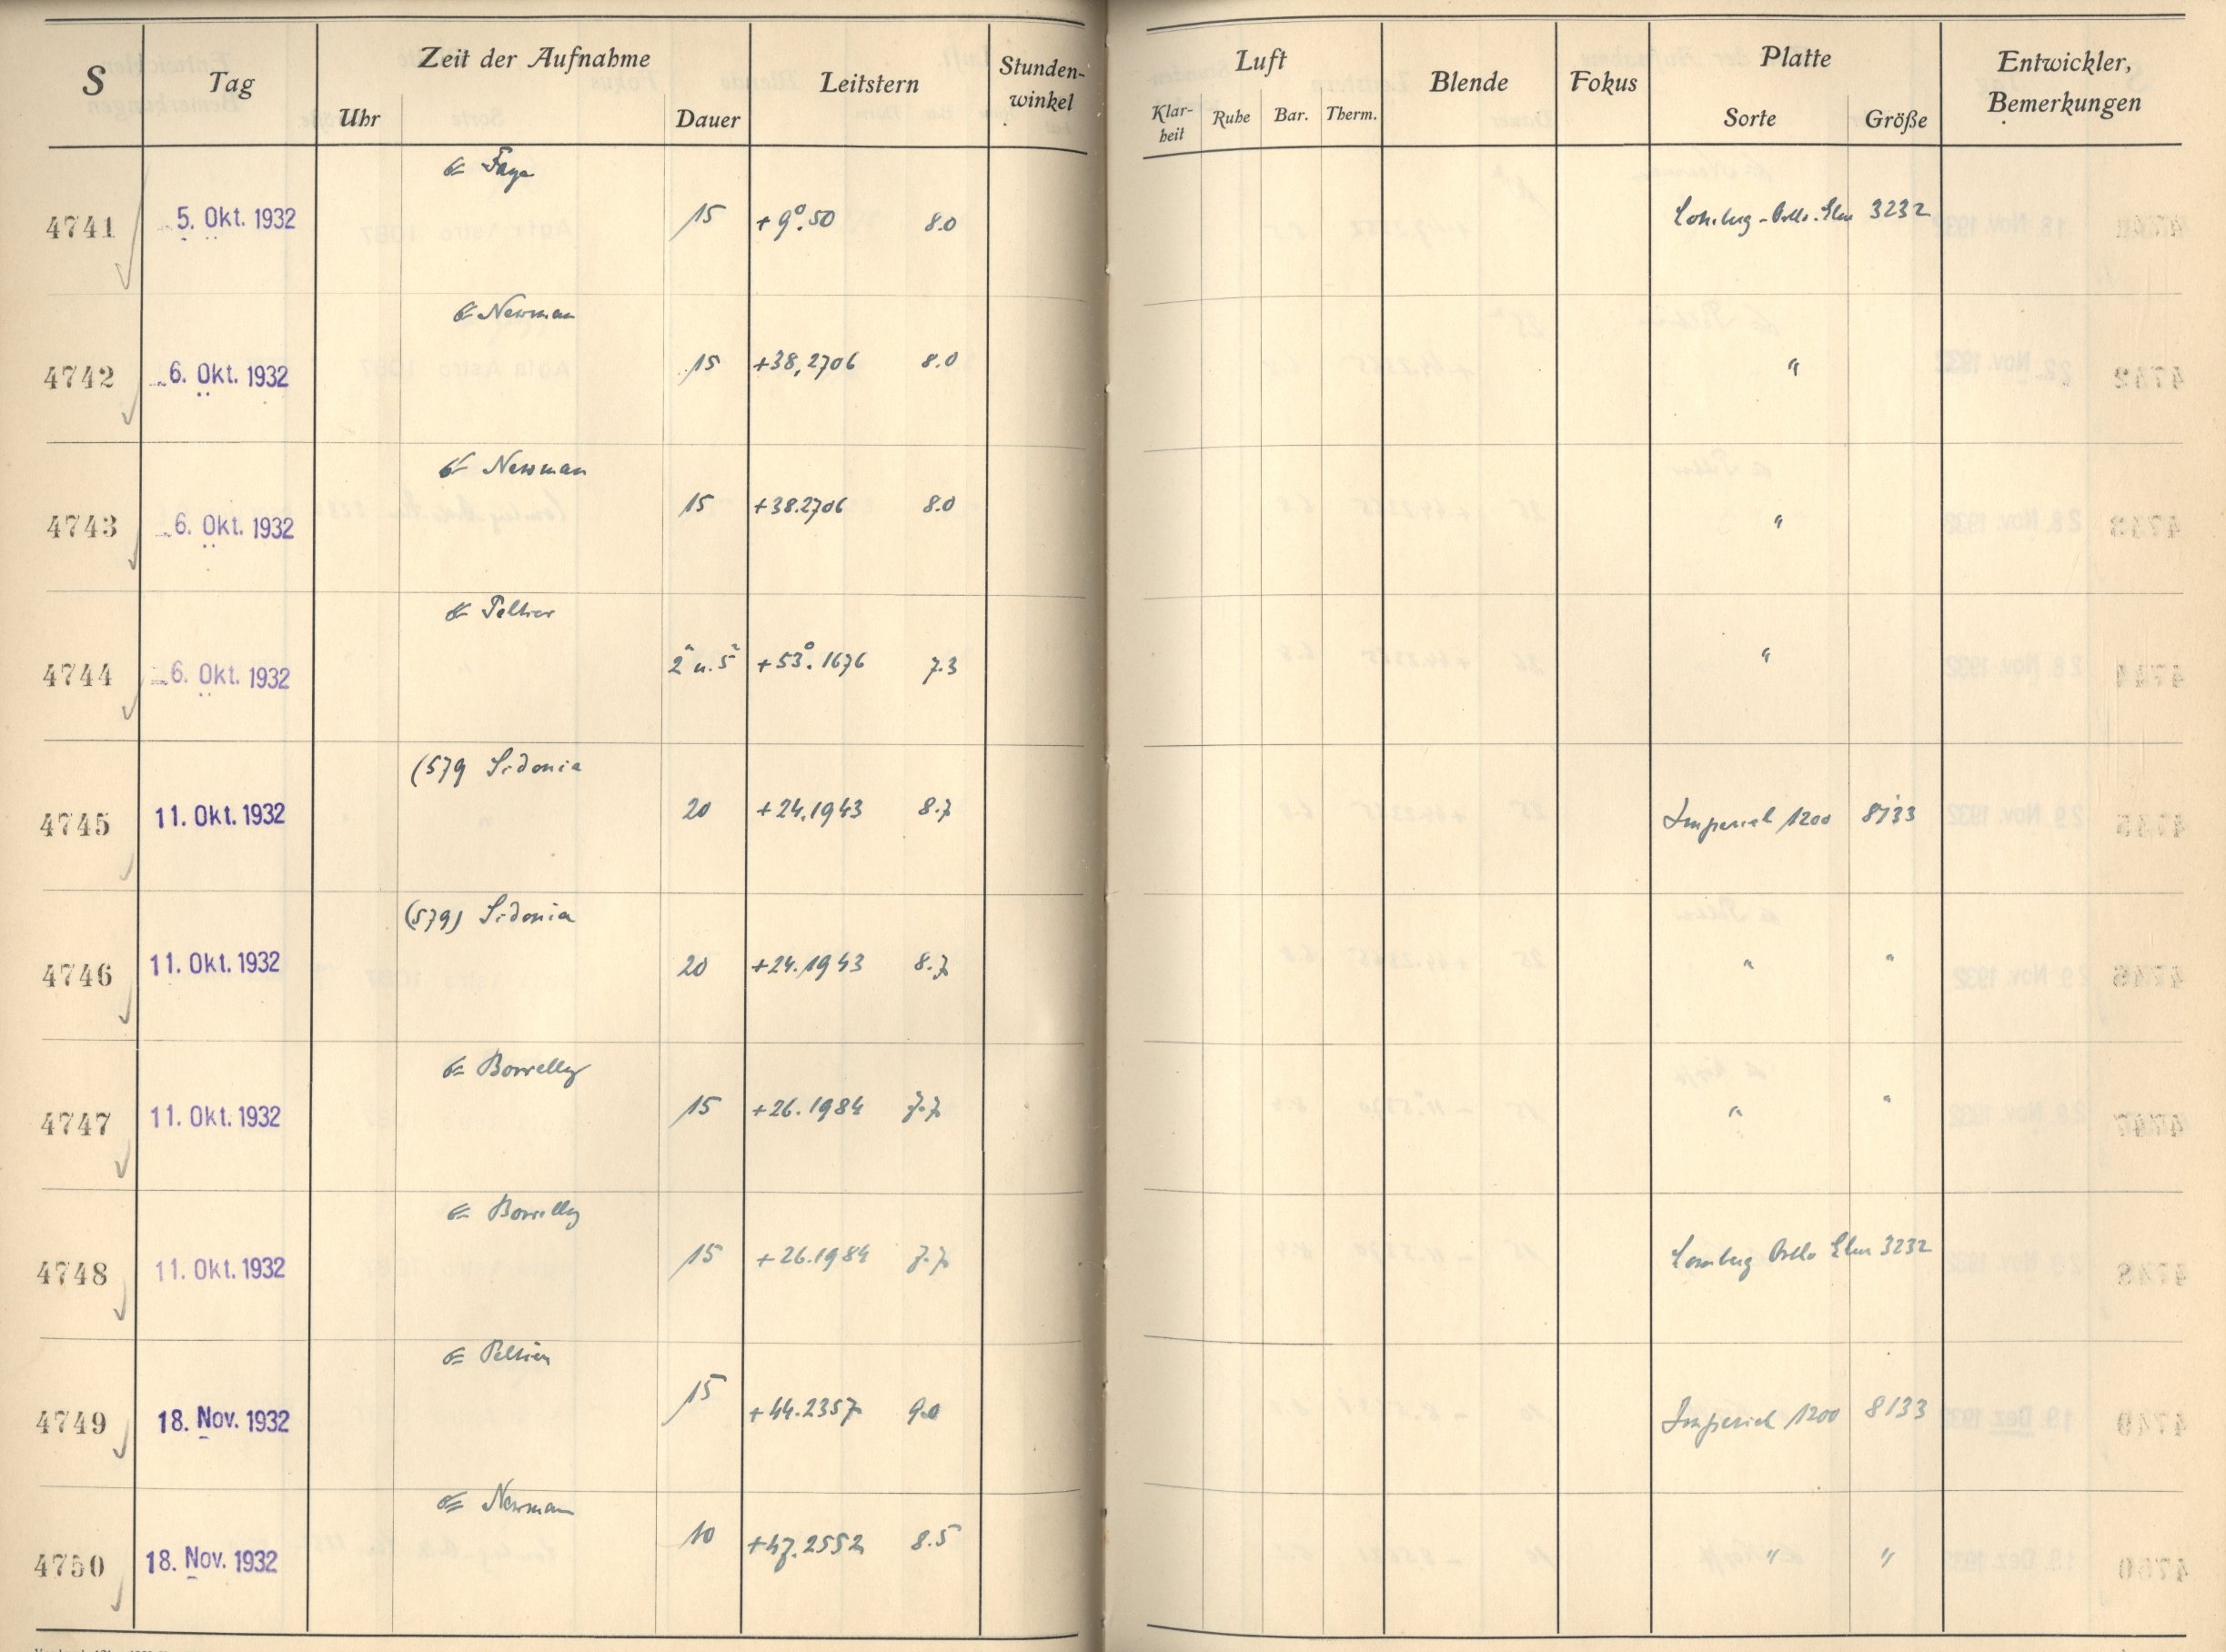 S Tag Zeit der Aufnahme Leitstern Stunden-winkel Luft Blende Fokus Platte Entwickler, Bemerkungen
Uhr Dauer Klar-heit Ruhe Bar. Therm. Sorte Größe
☄ Faye
4741 5. Okt. 1932 15 +9°.50 8.0 3232
☄ Newman
4742 6. Okt. 1932 15 +38,2706 8.0 "
☄ Newman
4743 6. Okt. 1932 15 +38.2706 8.0 "
☄ Peltier
4744 6. Okt. 1932 2ᵐ u. 5ᵐ +53°.1676 7.3 "
(579 Sidonia
4745 11. Okt. 1932 20 +24.1943 8.7 Imperial 1200 8133
(579) Sidonia
4746 11. Okt. 1932 20 +24.1943 8.7 " "
☄ Borrelly
4747 11. Okt. 1932 15 +26.1984 7.7 " "
☄ Borrelly
4748 11. Okt. 1932 15 +26.1984 7.7 3232
☄ Peltier
4749 18. Nov. 1932 15 +44.2357 9.0 Imperial 1200 8133
☄ Newman
4750 18. Nov. 1932 10 +47.2552 8.5 " "